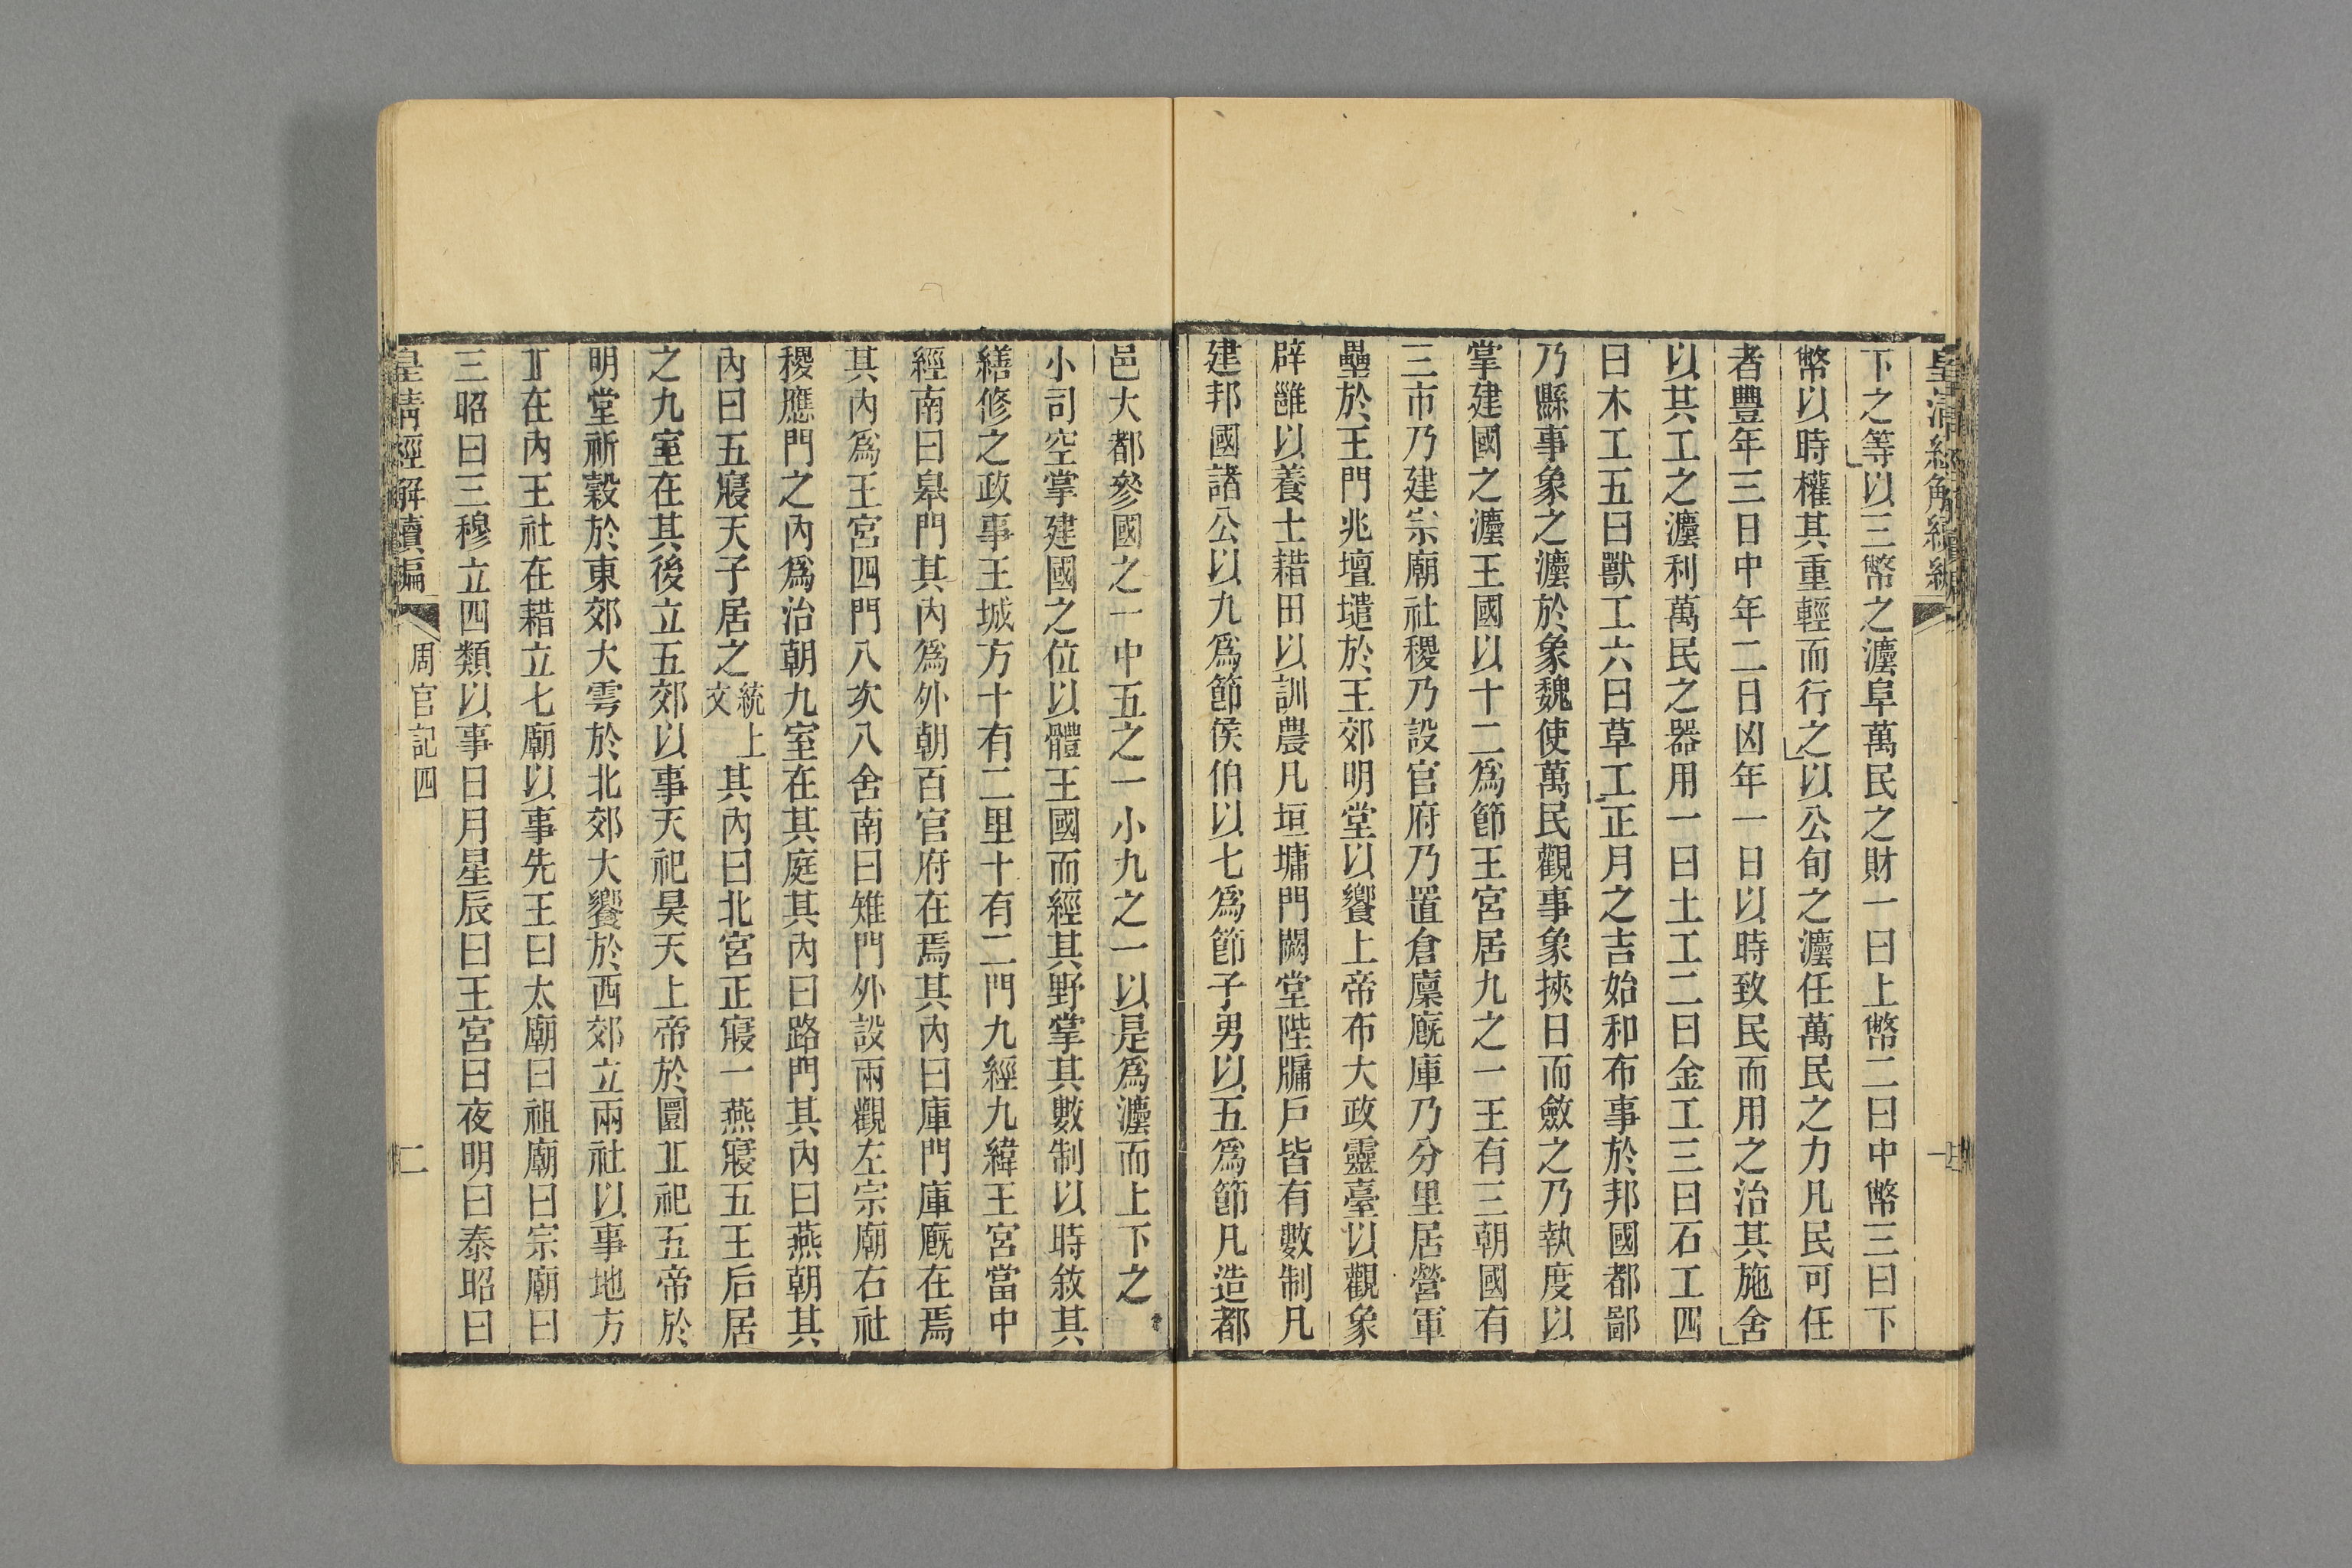 皇清經解續編
下之等以三幣之灋阜萬民之財一曰上幣二曰中幣三曰下
幣以時權其重輕而行之以公旬之灋任萬民之力凡民可任
者豐年三日中年二日凶年一日以時致民而用之治其施舍
以其工之灋利萬民之器用一曰土工二曰金工三曰石工四
曰木工五曰獸工六曰草工正月之吉始和布事於邦國都鄙
乃縣事象之灋於象魏使萬民觀事象挾日而斂之乃執度以
掌建國之灋王國以十二爲節王宮居九之一王有三朝國有
三市乃建宗廟社稷乃設官府乃置倉廩廐庫乃分里居營軍
壘於王門兆壇壝於王郊明堂以饗上帝布大政靈臺以觀象
辟雝以養士耤田以訓農凡垣墉門闕堂陛牖戶皆有數制凡
建邦國諸公以九爲節侯伯以七爲節子男以五爲節凡造都
邑大都參國之一中五之一小九之一以是爲灋而上下之
小司空掌建國之位以體王國而經其野掌其數制以時敘其
繕修之政事王城方十有二里十有二門九經九緯王宮當中
經南曰皋門其內爲外朝百官府在焉其內曰庫門庫廐在焉
其內爲王宮四門八次八舍南曰雉門外設兩觀左宗廟右社
稷應門之內爲治朝九室在其庭其內曰路門其內曰燕朝其
內曰五寢天子居之統上文其內曰北宮正寢一燕寢五王后居
之九室在其後立五郊以事天祀昊天上帝於圜丠祀五帝於
明堂祈穀於東郊大雩於北郊大饗於西郊立兩社以事地方
丠在內王社在耤立七廟以事先王曰太廟曰祖廟曰宗廟曰
三昭曰三穆立四類以事日月星辰曰王宮曰夜明曰泰昭曰
皇清經解續編
周官記四
二